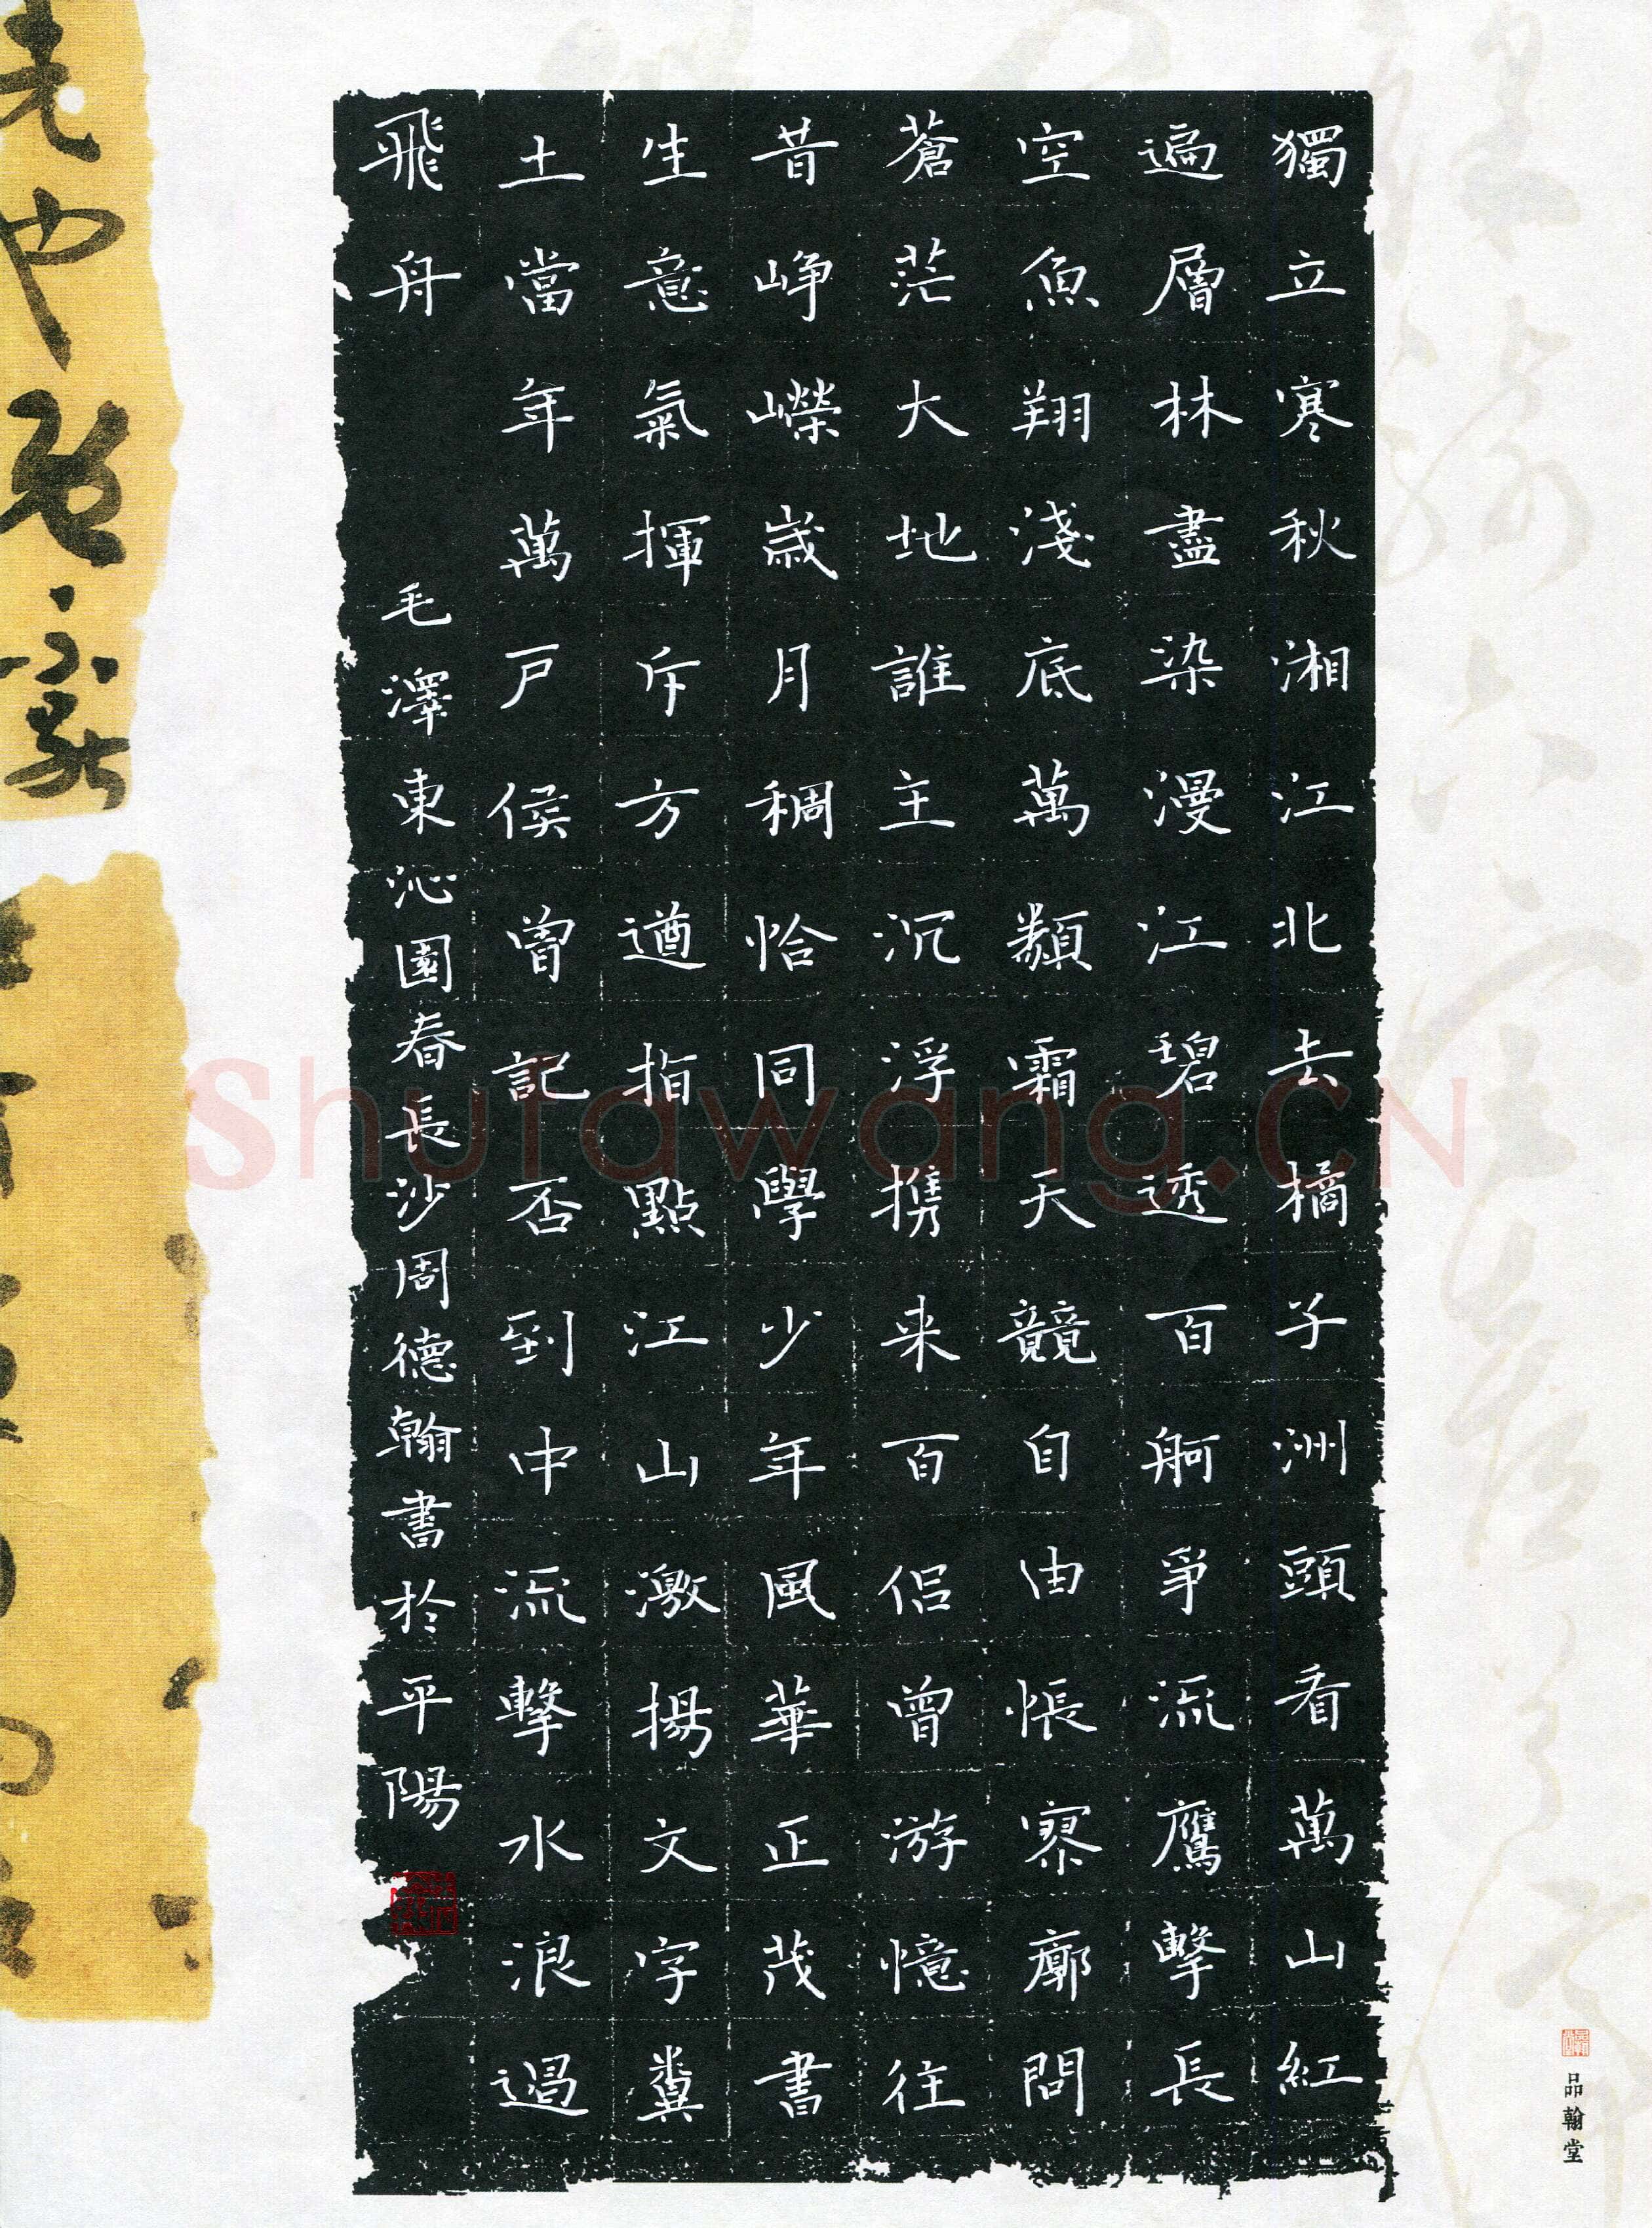 獨立寒秋湘江北去橘子洲頭看萬山紅
遍層林盡染漫江碧透百舸爭流鷹擊長
空魚翔淺底萬類霜天競自由悵寥廓問
蒼茫大地誰主沉浮携来百侣曾游憶往
昔崢嶸歲月稠恰同學少年風華正茂書
生意氣揮斥方遒指點江山激揚文字糞
土當年萬戶侯曾記否到中流擊水浪遏
飛舟 毛澤東沁園春長沙周德翰書於平陽
品翰堂
Shufawang.CN